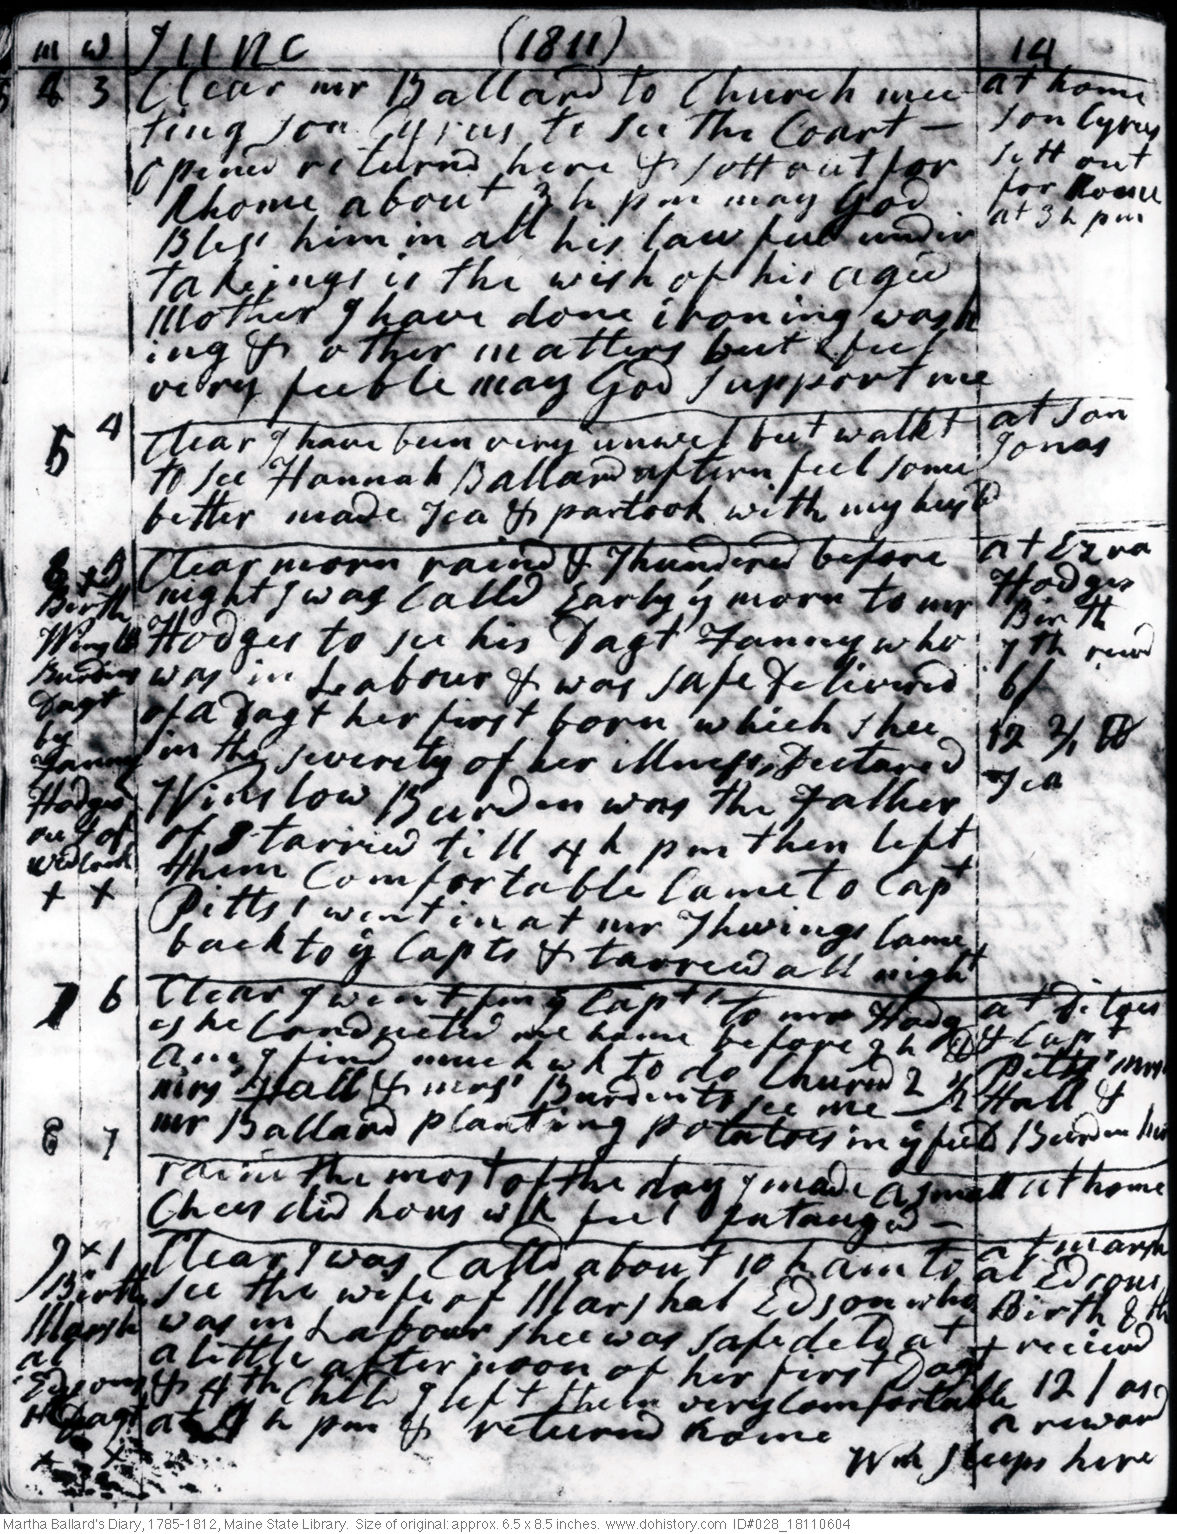 m w June (1811) 14
4 3 Clear mr Ballard to Church mee
ting son Cyrus to see the Court —
opened returnd here & sett out for
Rhome about 3 h pm may God
Bless him in all his lawfull under
takeings is the wish of his aged
Mother I have done ironing wash
ing & other matters but I feel
very feeble may God support me
at home
son Cyrus
sett out
for Rome
at 3 h pm
5 4 Clear I have been very unwel but walkt
to see Hannah Ballard aftern feel some
better made Tea & partook with my husbd
at son
Jonas
6 5 Clear morn raind & Thundered before
night I was Calld Early y morn to mr
Hodges to see his Dagt Fanny who
was in Labour & was safe Delivered
of a Dagt her first born which shee
in the severity of her illness Declared
Winslow Burden was the Father
of I tarried till 4 h pm then left
them Comfortable Came to Capt
Pitts I went in at mr Thwings Came
back to y Capts & tarried all night
Birth
Winslo
Burdins
Dagt
by
Fanny
Hodges
out of
wedlock
+ +
at Ezra
Hodges
Birth
7th reced
6/
12 2/
Tea
7 6 Clear I went from y Capts to mr Hodg
es he Conducted me home before 2 h
I find much wk to do Churnd 2
mrs Hall & mrs Burdin to see me
mr Ballard planting potatoes in y field
at Ditoes
& Capt
Pitts mrs
Hall &
Burden here
8 7 rain the most of the day I made a small
Chees did hous wk feel fataugud —
at home
9 × 1 Clear I was Calld about 10 h am to
see the wife of Marshal Edson who
was in Labour shee was safe deld at
a little after noon of her first Dagt
& 4th Child I left them very Comfortable
at h pm & returnd home
Birth
Marsh
al
Edsons
Dagt
× ×
at Marsh
al Edsons
Birth 8th
+ received
12/ as
a reward
Wm sleeps here
Martha Ballard's Diary, 1785-1812, Maine State Library. Size of original: approx. 6.5 x 8.5 inches. www.dohistory.com ID#028_18110604